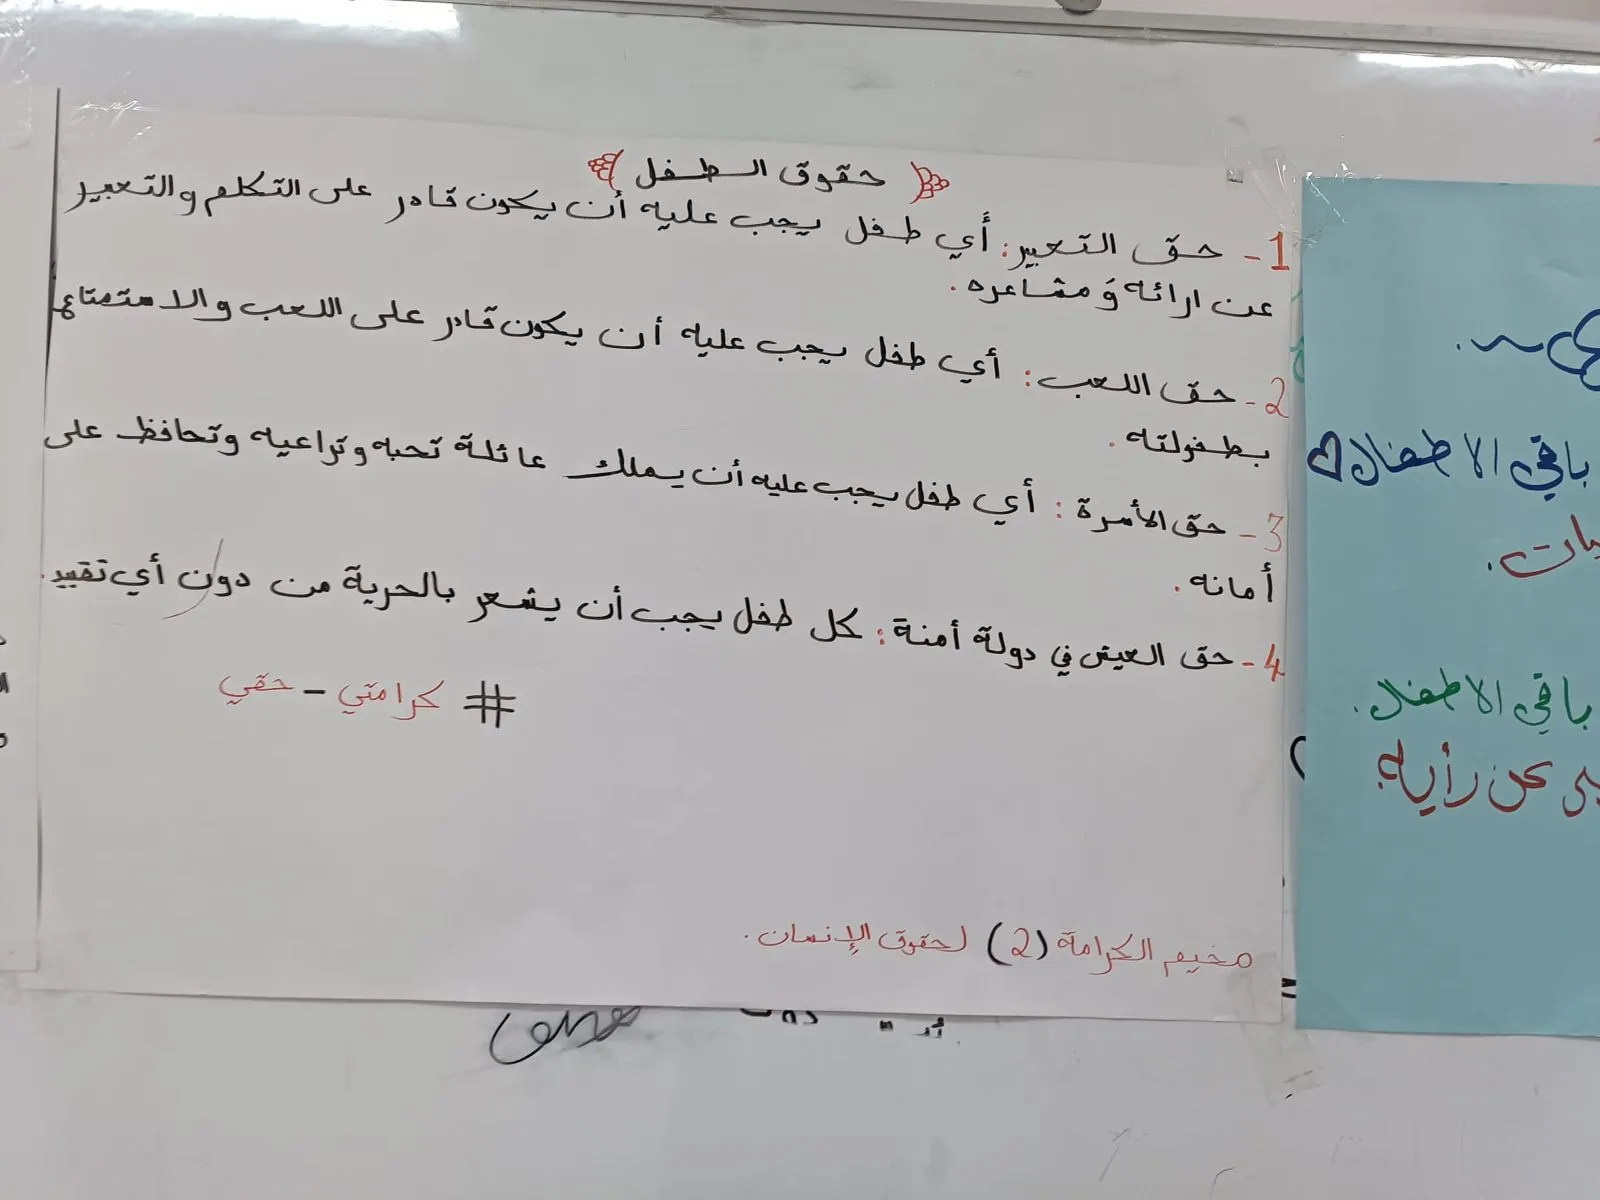 حقوق الطفل
1- حق التعبير: أي طفل يجب عليه أن يكون قادر على التكلم والتعبير
عن ارائه و مشاعره.
2- حق اللعب: أي طفل يجب عليه أن يكون قادر على اللعب والاستمتاع
بطفولته.
3- حق الأسرة: أي طفل يجب عليه أن يملك عائلة تحبه وتراعيه وتحافظ على
أمانه.
4- حق العيش في دولة أمنة: كل طفل يجب أن يشعر بالحرية من دون أي تقييد.
# كرامتي - حقي
مخيم الكرامة (2) لحقوق الإنسان.
باقي الاطفال
باقي الاطفال.
عن رأيه.